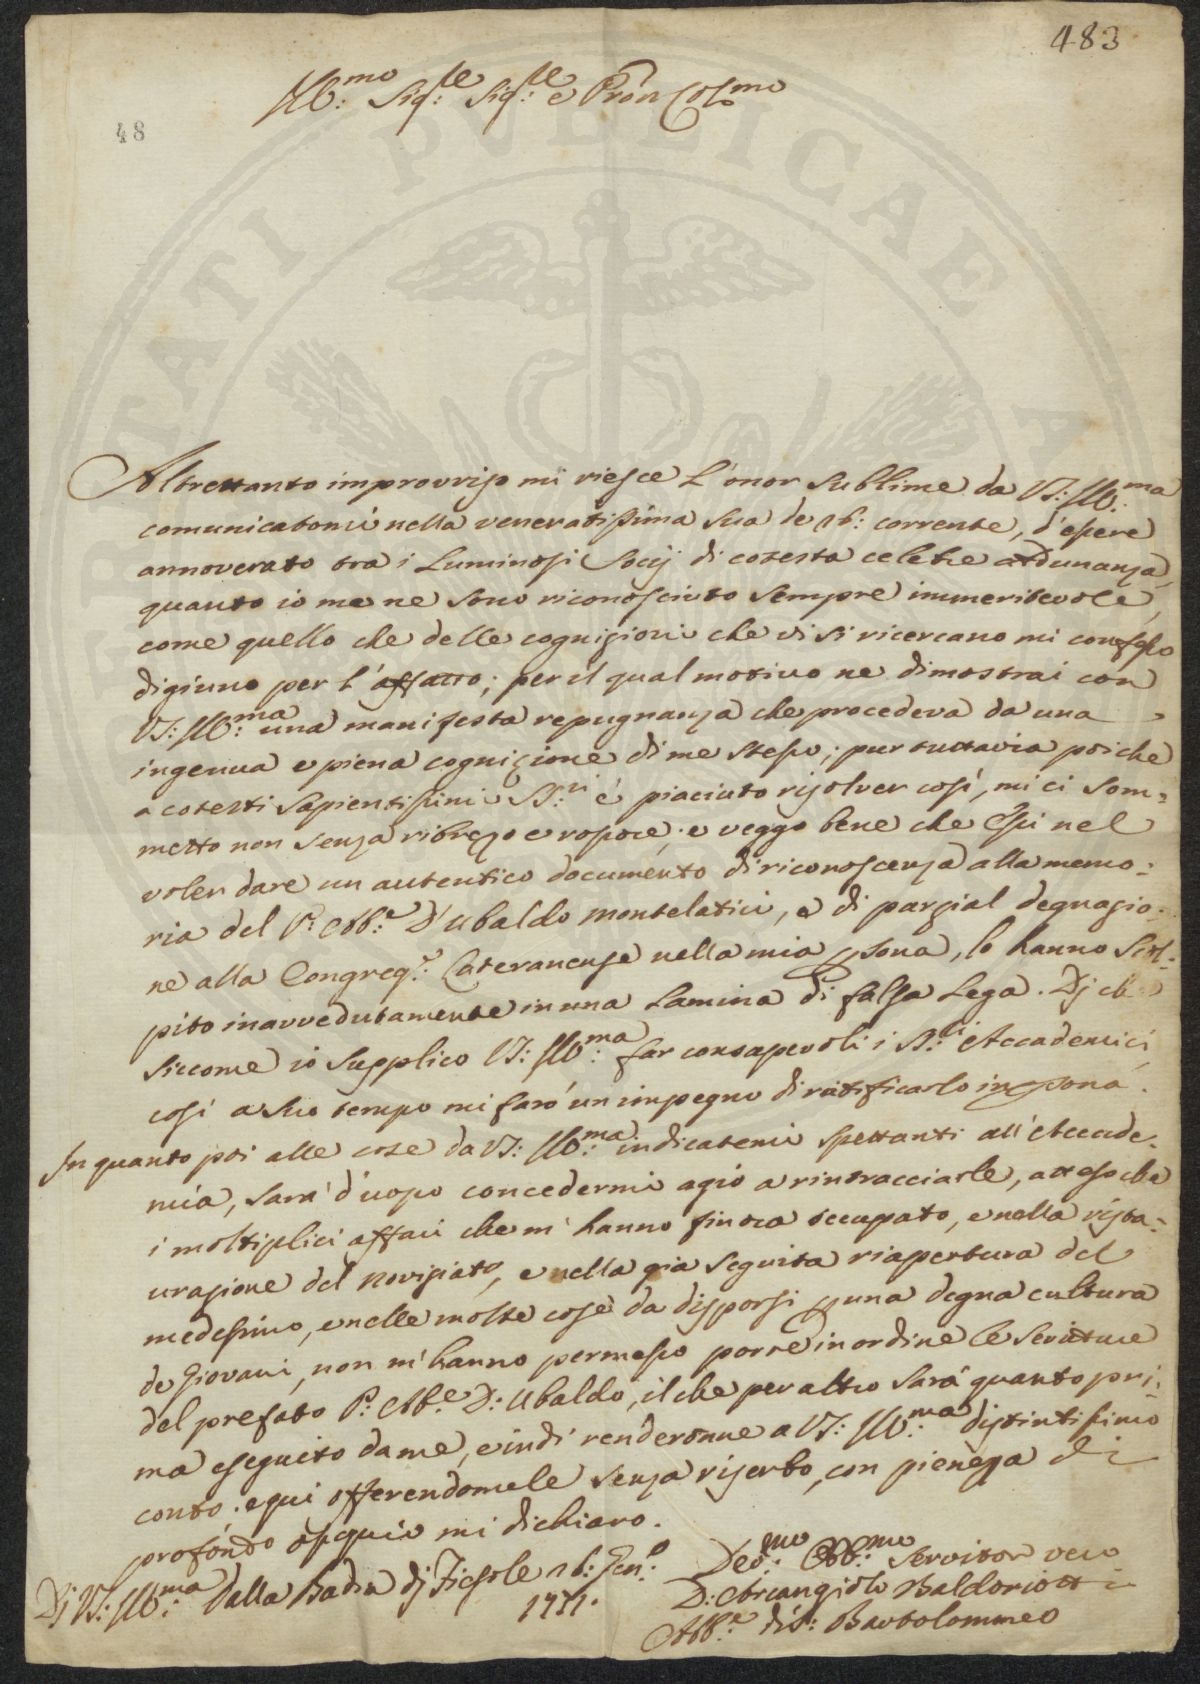 483
Ill:mo Sig:re Sig:re e Pron Col:mo
48
PVBLICAE
Altrettanto improvviso mi riesce l'onor sublime da VS: Ill:ma
comunicatomi nella veneratissima sua de 16: corrente, d'essere
annoverato tra i luminosi Socij di cotesta celebre adunanza,
quanto io me ne sono riconosciuto sempre immeritevole,
come quello che delle cognizioni che vi si ricercano mi confesso
digiuno per l'affatto; per il qual motivo ne dimostrai con
VS: Ill:ma una manifesta repugnanza che procedeva da una
ingenua e piena cognizione di me stesso; pur tuttavia poiche
a cotesti sapientissimi SS:ri è piaciuto risolver così, mi ci som=
metto non senza ribrezo e rossore; e veggo bene che essi nel
voler dare un autentico documento di riconoscenza alla memo=
ria del P. Abb:e D'Ubaldo Montelatici, e di parzial degnazio=
ne alla Congreg:e Lateranense nella mia psona, lo hanno scol=
pito inavvedutamente in una lamina di falsa lega. Di che
siccome io supplico VS: Ill:ma far consapevoli i SS:ri Accademici,
così a suo tempo mi farò un impegno di ratificarlo in psona.
In quanto poi alle cose da VS: Ill:ma indicatemi spettanti all'Accade=
mia, sarà d'uopo concedermi agio a rintracciarle, atteso che
i moltiplici affari che m'hanno finora occupato, e nella resta=
urazione del novizиato, e nella già seguita riapertura del
medesimo, e nelle molte cose da disporsi p una degna cultura
de Giovani, non m'hanno permesso porre in ordine le scritture
del prefato P: Abb:e D: Ubaldo, il che per altro sarà quanto pri=
ma eseguito da me, e indi renderonne a VS: Ill:ma distintissimo
conto; e qui offerendomele senza riserbo, con pienezza di
profondo ossequio mi dichiaro.
Di VS: Ill:ma Dalla Badia di Fiesole 26: Gen:o
1771.
Dev:mo Obb:mo Servitor vero
D: Arcangiolo Baldoriotti
Abb:e di S: Bartolommeo